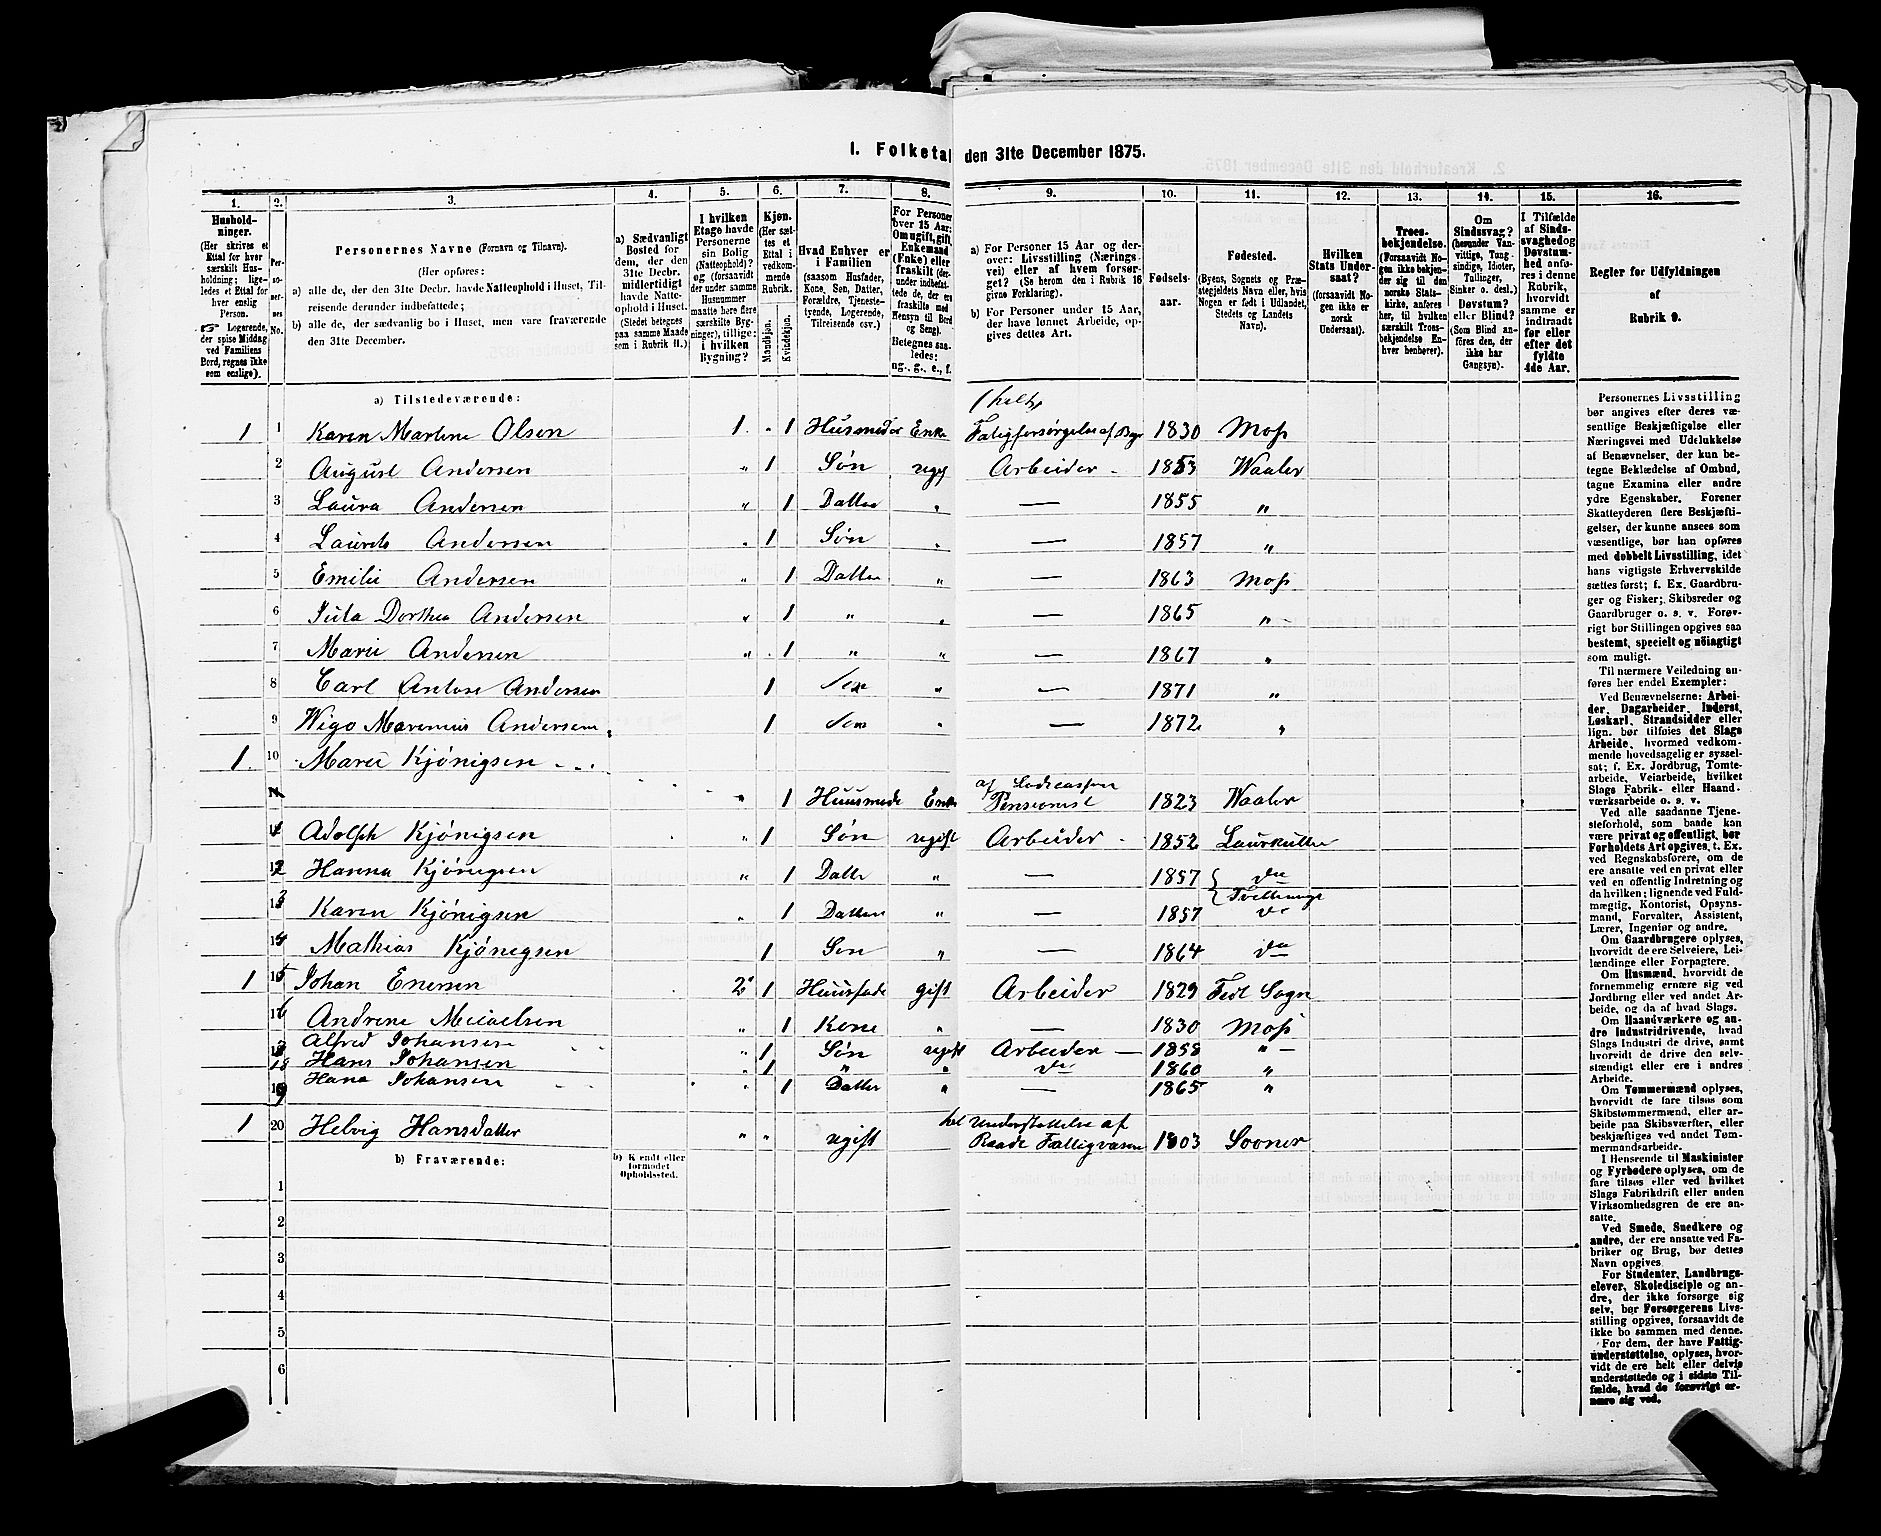 1. Folketal den 31te December 1875.
1. 2. 3. 4. 5. 6. 7. 8. 9. 10. 11. 12. 13. 14. 15. 16.
Hushold-
ninger.
(Her skrives et
Ettal for hver
særskilt Hus-
holdning; lige-
ledes et Ettal for
hver enslig
Person.
☞ Logerende,
der spise Middag
ved Familiens
Bord, regnes ikke
som enslige).
Per-
so-
ner-
nes
No.
Personernes Navne (Fornavn og Tilnavn).
(Her opføres:
a) alle de, der den 31te Decbr. havde Natteophold i Huset, Til-
reisende derunder indbefattede;
b) alle de, der sædvanlig bo i Huset, men vare fraværende
den 31te December.
a) Sædvanligt
Bosted for
dem, der den
31te Decbr.
midlertidigt
havde Natte-
ophold i Huset.
(Stedet betegnes
paa samme Maade
som i Rubrik 11.)
I hvilken
Etage havde
Personerne
sin Bolig
(Natteophold)?
og (forsaavidt
der under samme
Husnummer
maatte høre flere
særskilte Byg-
ninger), tillige:
i hvilken
Bygning?
Kjøn.
(Her sæt-
tes et
Ettal i
vedkom-
mende
Rubrik.
Mandkjøn.
Kvindekjøn.
Hvad Enhver er
i Familien
(saasom Husfader,
Kone, Søn, Datter,
Forældre, Tjeneste-
tyende, Logerende,
Tilreisende osv.)
For Personer
over 15 Aar:
Om ugift, gift,
Enkemand
(Enke) eller
fraskilt (der-
under indbefat-
tede de, der ere
fraskilte med
Hensyn til Bord
og Seng).
Betegnes saa-
ledes:
ug., g., e., f.
a) For Personer 15 Aar og der-
over: Livsstilling (Nærings-
vei) eller af hvem forsør-
get? (Se herom den i Rubrik 16
givne Forklaring).
b) For Personer under 15 Aar,
der have lønnet Arbeide, op-
gives dettes Art.
Fødsels-
aar.
Fødested.
(Byens, Sognets og Præ-
stegjeldets Navn eller, hvis
Nogen er født i Udlandet,
Stedets og Landets
Navn).
Hvilken
Stats Under-
saat?
(forsaavidt No-
gen ikke er
norsk
Undersaat).
Troes-
bekjendelse.
(Forsaavidt No-
gen ikke bekjen-
der sig til den
norske Stats-
kirke, anføres
her, til hvilken
særskilt Troes-
bekjendelse En-
hver henhører).
Om
Sindssvag?
(herunder Van-
vittige, Tung-
sindige, Idioter,
Tullinger,
Sinker o. desl.)
Døvstum?
eller Blind?
(Som Blind an-
føres den, der
ikke har
Gangsyn).
I Tilfælde
af Sinds-
svaghed og
Døvstum-
hed anfø-
res i denne
Rubrik,
hvorvidt
samme er
indtraadt
før eller
efter det
fyldte
4de Aar.
Regler for Udfyldningen
af
Rubrik 9.
a) Tilstedeværende:
1 1 Karen Martene Olsen 1. 1 Husmoder Enke (helt) Fatigforsørgelse af 1830 Moss
2 August Andersen " 1 Søn ugif Arbeider 1853 Waaler
3 Laura Andersen " 1 Datter " — 1855 "
4 Laurits Andersen " 1 Søn " — 1857 "
5 Emilie Andersen " 1 Datter " — 1863 Moss
6 Dorthea Andersen " 1 " " — 1865 "
7 Marie Andersen " 1 " " — 1867 "
8 Carl Antose Andersen 1 Søn " — 1871 "
9 Wigo Marenius Andersen 1 Søn " — 1872 "
1. 10 Marie Kjönigsen
" 1 Huusmode Enke af Pensionist 1823 Waaler
Adolph Kjönigsen " 1 Søn ugift Arbeider 1852 Laurkullen
Hanna Kjönigsen " 1 Datte " — 1857 do
Karen Kjönigsen " 1 Datter " — 1857 do
14 Mathias Kjönegsen 1 Son " — 1864 do
1 15 Johan Enersen 2 1 Huusfade gift Arbeider 1829 Sogn
16 Andrene Micaelsen " 1 Kone " — 1830 Moss
Alfred Johansen " 1 Søn ugift Arbeider — 1858 "
18 Hans Johansen " 1 " " do 1860 "
19 Hana Johansen " 1 Datter " 1865 "
1 20 Helvig Hansdatter " " ugift hel Understøttelse af Raade Fattigvæsen 1803 Sooner
b) Fraværende:
b) Kjendt eller
formodet
Opholdssted.
1
2
3
4
5
6
Personernes Livsstilling
bør angives efter deres væ-
sentlige Beskjæftigelse eller
Næringsvei med Udelukkelse
af Benævnelser, der kun be-
tegne Beklædelse af Ombud,
tagne Examina eller andre
ydre Egenskaber. Forener
Skatteyderen flere Beskjæfti-
gelser, der kunne ansees som
væsentlige, bør han opføres
med dobbelt Livsstilling, idet
hans vigtigste Erhvervskilde
sættes først; f. Ex. Gaardbru-
ger og Fisker; Skibsreder og
Gaardbruger o. s. v. Forøv-
rigt bør Stillingen opgives saa
bestemt, specielt og nöiagtigt
som muligt.
Til nærmere Veiledning an-
føres her endel Exempler:
Ved Benævnelserne: Arbei-
der, Dagarbeider, Inderst,
Løskarl, Strandsidder eller
lign. bør tilføies det Slags
Arbeide, hvormed vedkom-
mende hovedsagelig er syssel-
sat; f. Ex. Jordbrug, Tomte-
arbeide, Veiarbeide, hvilket
Slags Fabrik- eller Haand-
værksarbeide o. s. v.
Ved alle saadanne Tjene-
steforhold, som baade kan
være privat og offentligt, bør
Forholdets Art opgives, t. Ex.
ved Regnskabsførere, om de
ere ansatte ved en privat eller
ved en offentlig Indretning og
da hvilken; lignende ved Fuld-
mægtig, Kontorist, Opsyns-
mand, Forvalter, Assistent,
Lærer, Ingeniør og andre.
Om Gaardbrugere oplyses,
hvorvidt de ere Selveiere, Lei-
lændinge eller Forpagtere.
Om Husmænd, hvorvidt de
fornemmelig ernære sig ved
Jordbrug eller ved andet Ar-
beide, og da af hvad Slags.
Om Haandværkere og an-
dre Industridrivende, hvad
Slags Industri de drive, samt
hvorvidt de drive den selv-
stændigt eller ere i andres
Arbeide.
Om Tømmermænd oplyses,
hvorvidt de fare tilsøs som
Skibstømmermænd, eller ar-
beide paa Skibsværfter, eller
beskjæftiges ved andet Tøm-
mermandsarbeide.
I Henseende til Maskinister
og Fyrbødere oplyses, om de
fare tilsøs eller ved hvilket
Slags Fabrikdrift eller anden
Virksomhedsgren de ere an-
satte.
Ved Smede, Snedkere og
andre, der ere ansatte ved Fa-
briker og Brug, bør dettes
Navn opgives.
For Studenter, Landbrugs-
elever, Skoledisciple og an-
dre, der ikke forsørge sig
selv, bør Forsørgerens Livs-
stilling opgives, forsaavidt de
ikke bo sammen med denne.
For dem, der have Fattig-
understøttelse, oplyses, hvor-
vidt de ere helt eller delvis
understøttede og i sidste Til-
fælde, hvad de forøvrigt er-
nære sig ved.